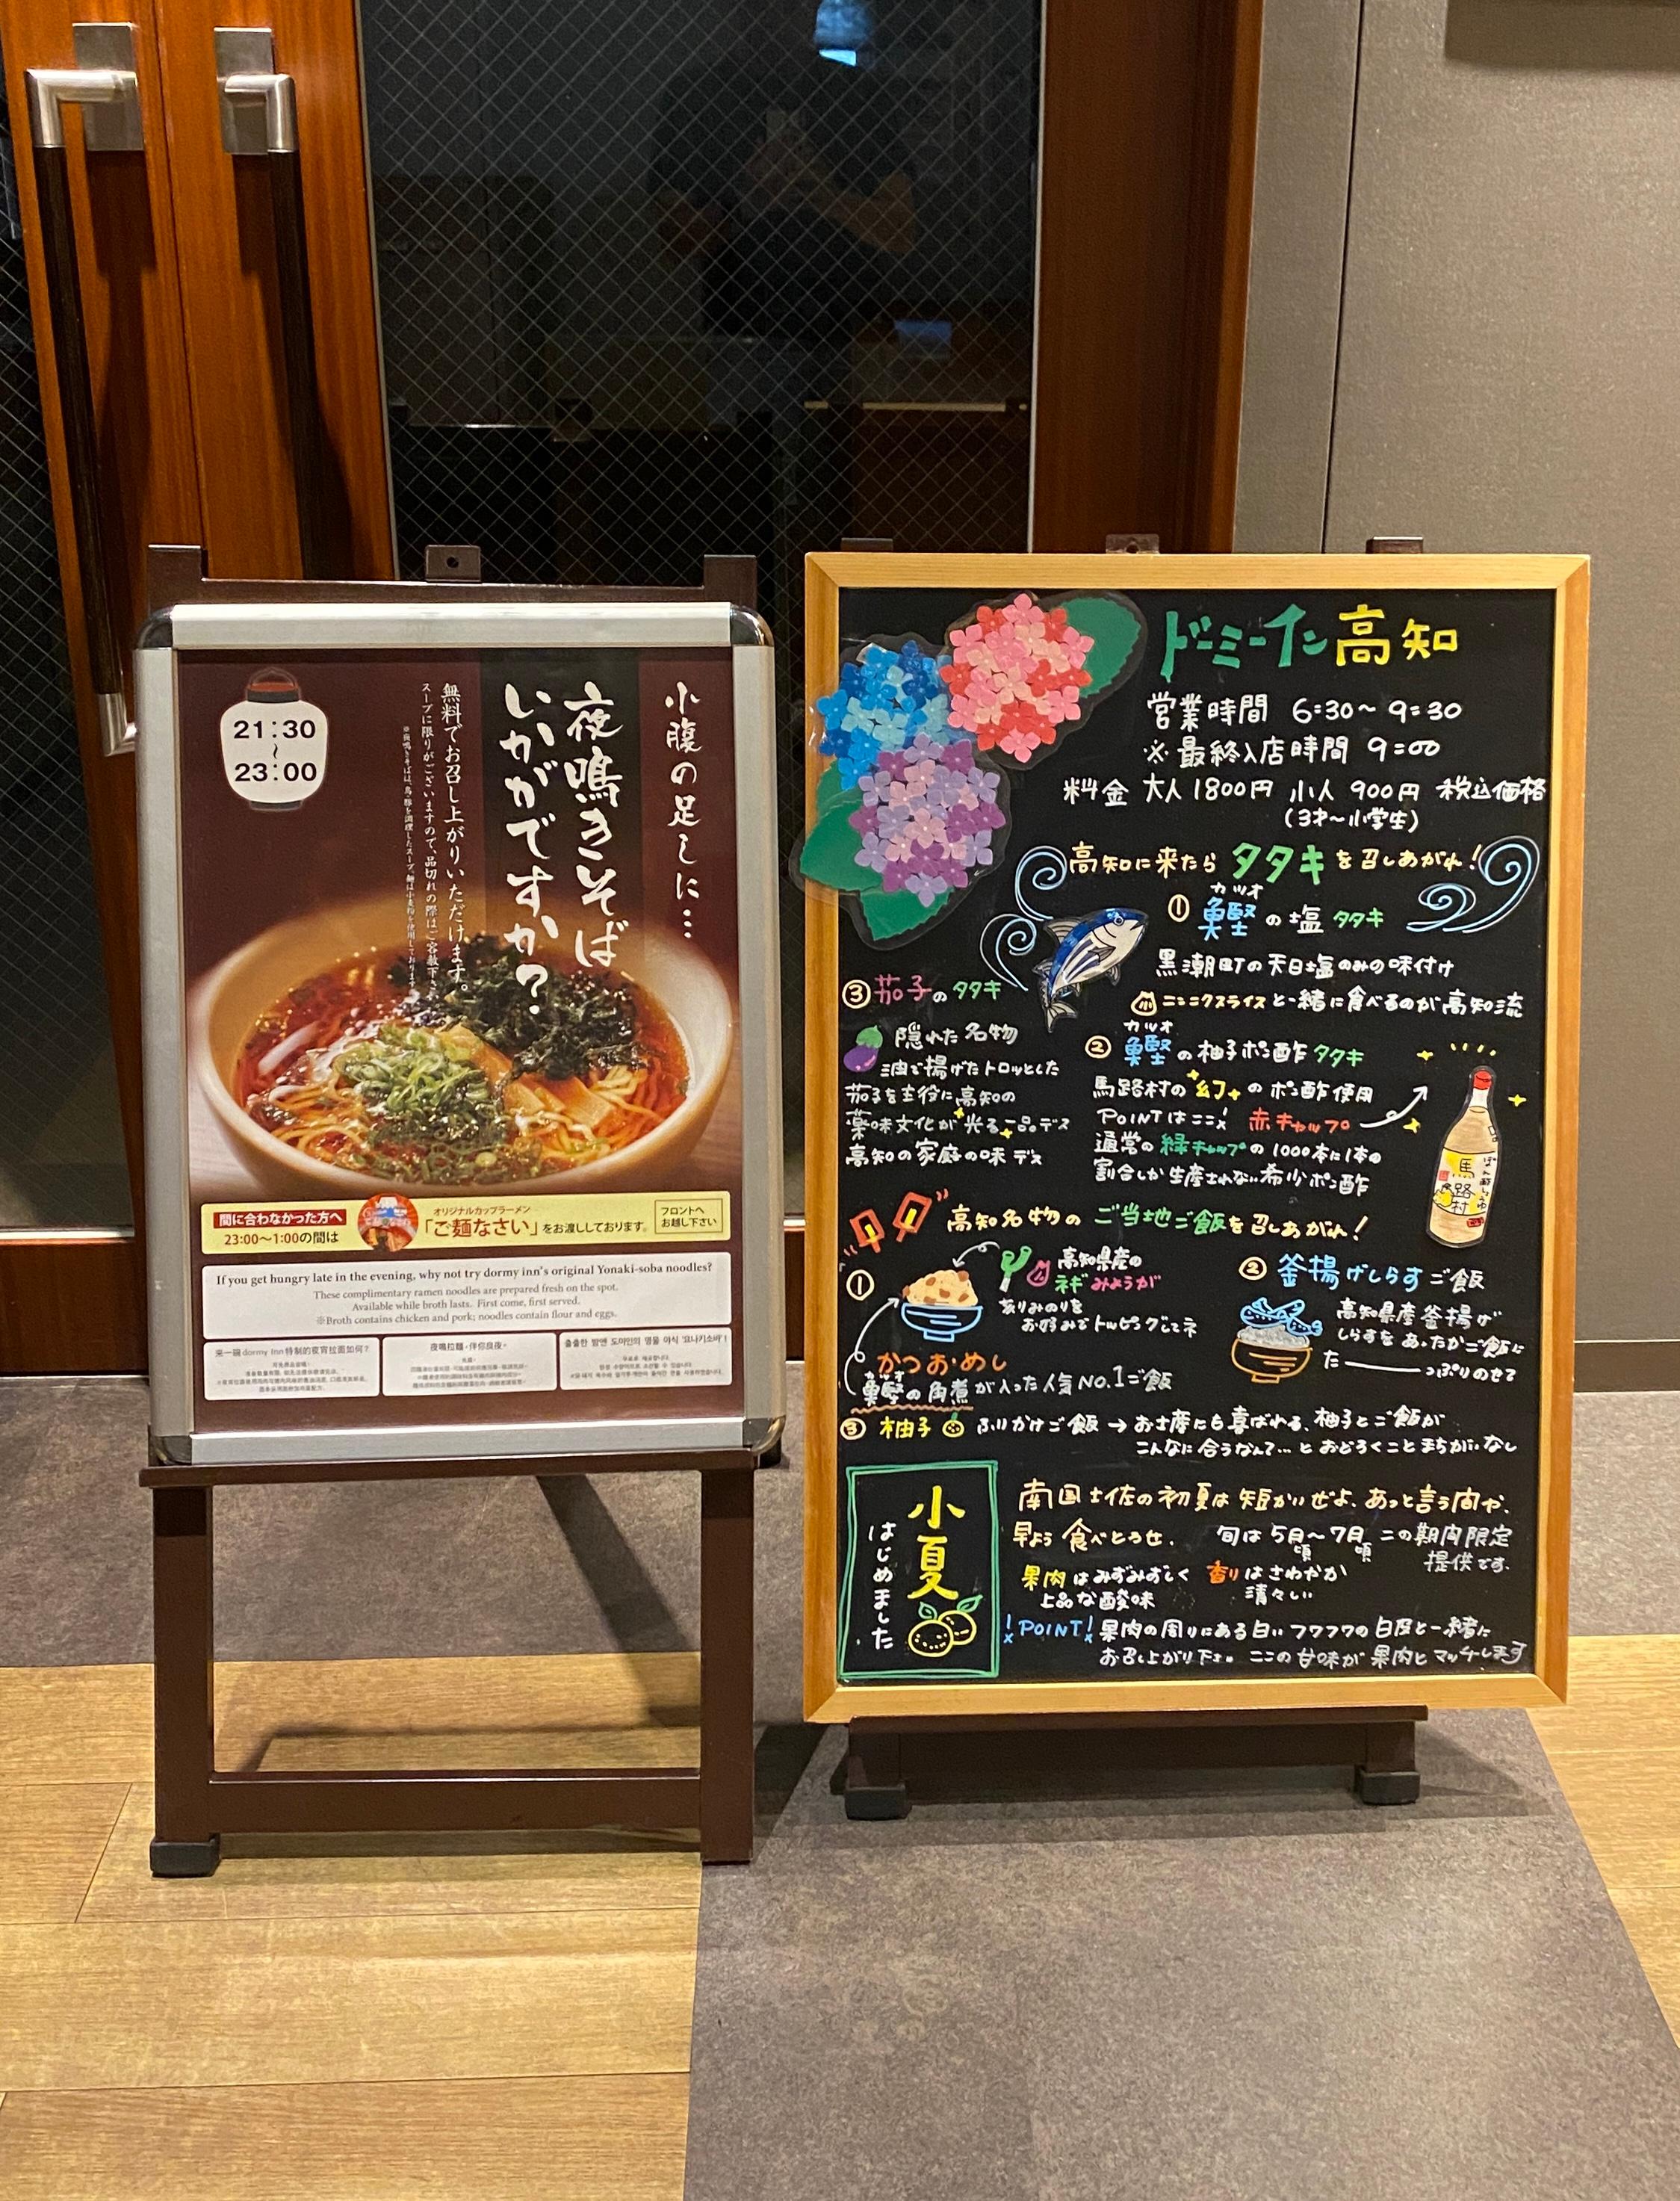 21:30
~
23:00
小腹の足しに…
夜鳴きそば
いかがですか?
無料でお召し上がりいただけます。
スープに限りがございますので、品切れの際はご容赦下さ
間に合わなかった方へ
23:00～1:00の間は
オリジナルカップラーメン
「ご麺なさい」をお渡ししております。
フロントへ
お越し下さい
If you get hungry late in the evening, why not try dormy inn's original Yonaki-soba noodles?
These complimentary ramen noodles are prepared fresh on the spot.
Available while broth lasts. First come, first served.
※Broth contains chicken and pork; noodles contain flour and eggs.
来一碗 dormy Inn 特制的夜宵拉面如何?
夜鳴拉麵,伴你良夜。
출출한 밤엔 도미인의 명물 야식 '요나키소바'!
ドーミーイン高知
営業時間 6:30～9:30
※最終入店時間 9:00
料金 大人1800円 小人 900円 税込価格
(3才～小学生)
高知に来たら タタキを召しあがれ!
カツオ
①鰹の塩タタキ
黒潮町の天日塩のみの味付け
ニンニクスライスと一緒に食べるのが高知流
カツオ
②鰹の柚子ポン酢タタキ
馬路村の幻のポン酢使用
POINTはここ! 赤キャップ
通常の緑キャップの1000本に1本の
割合しか生産されない希少ポン酢
馬路村
ぽん酢しょうゆ
③茄子のタタキ
隠れた名物
油で揚げたトロッとした
茄子を主役に高知の
薬味文化が光る一品デス
高知の家庭の味デス
高知名物のご当地ご飯を召しあがれ!
①
高知県産の
ネギみょうが
ありみのりを
お好みでトッピングしてネ
かつおめし
カツオ
鰹の角煮が入った人気NO.1ご飯
②釜揚げしらすご飯
高知県産釜揚げ
しらすをあったかご飯に
た――っぷりのせて
③柚子ふりかけご飯→お土産にも喜ばれる、柚子とご飯が
こんなに合うなんて…とおどろくことまちがいなし
小夏
はじめました
南国土佐の初夏は短かいぜよ、あっと言う間や、
早よう食べとうせ.
旬は5月頃～7月頃 この期間限定
提供です.
果肉はみずみずしく
上品な酸味
香りはさわやか
清々しい
!POINT! 果肉の周りにある白いフワフワの白皮と一緒に
お召し上がり下さい ここの甘味が果肉とマッチします